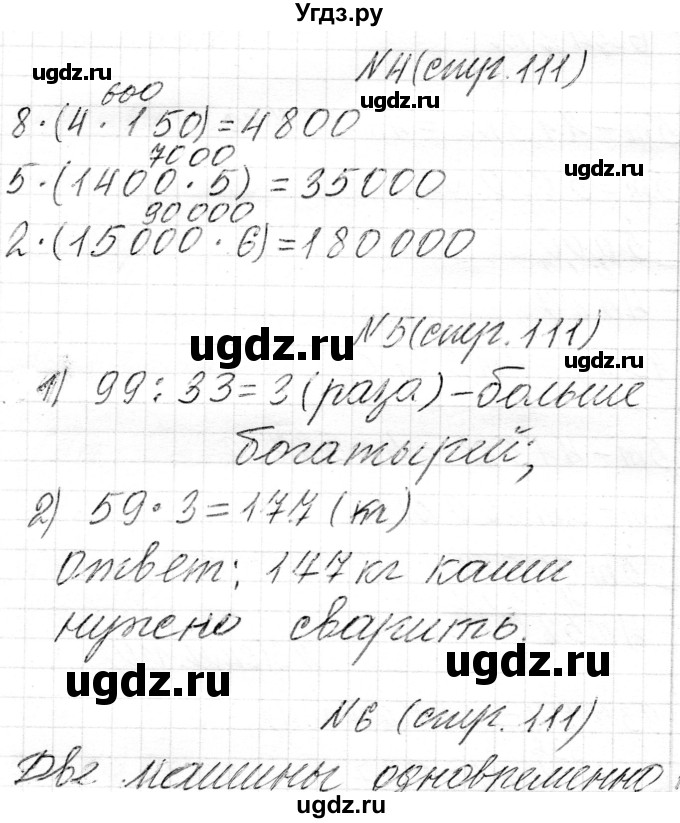 Угдз.ру
№4(стр.111)
ugdz.ru ugdz.ru
600
8·(4·150)=4800
7000
5·(1400·5)=35000
90000
2·(15000·6)=180000
№5(стр.111)
ugdz.ru ugdz.ru
1) 99:33=3(раза)-больше
богатырей;
ugdz.ru
2) 59·3=177(кг)
ответ: 177кг каши
нужно сварить.
ugdz.ru ugdz.ru
№6 (стр.111)
Две машины одновременно
ugdz.ru